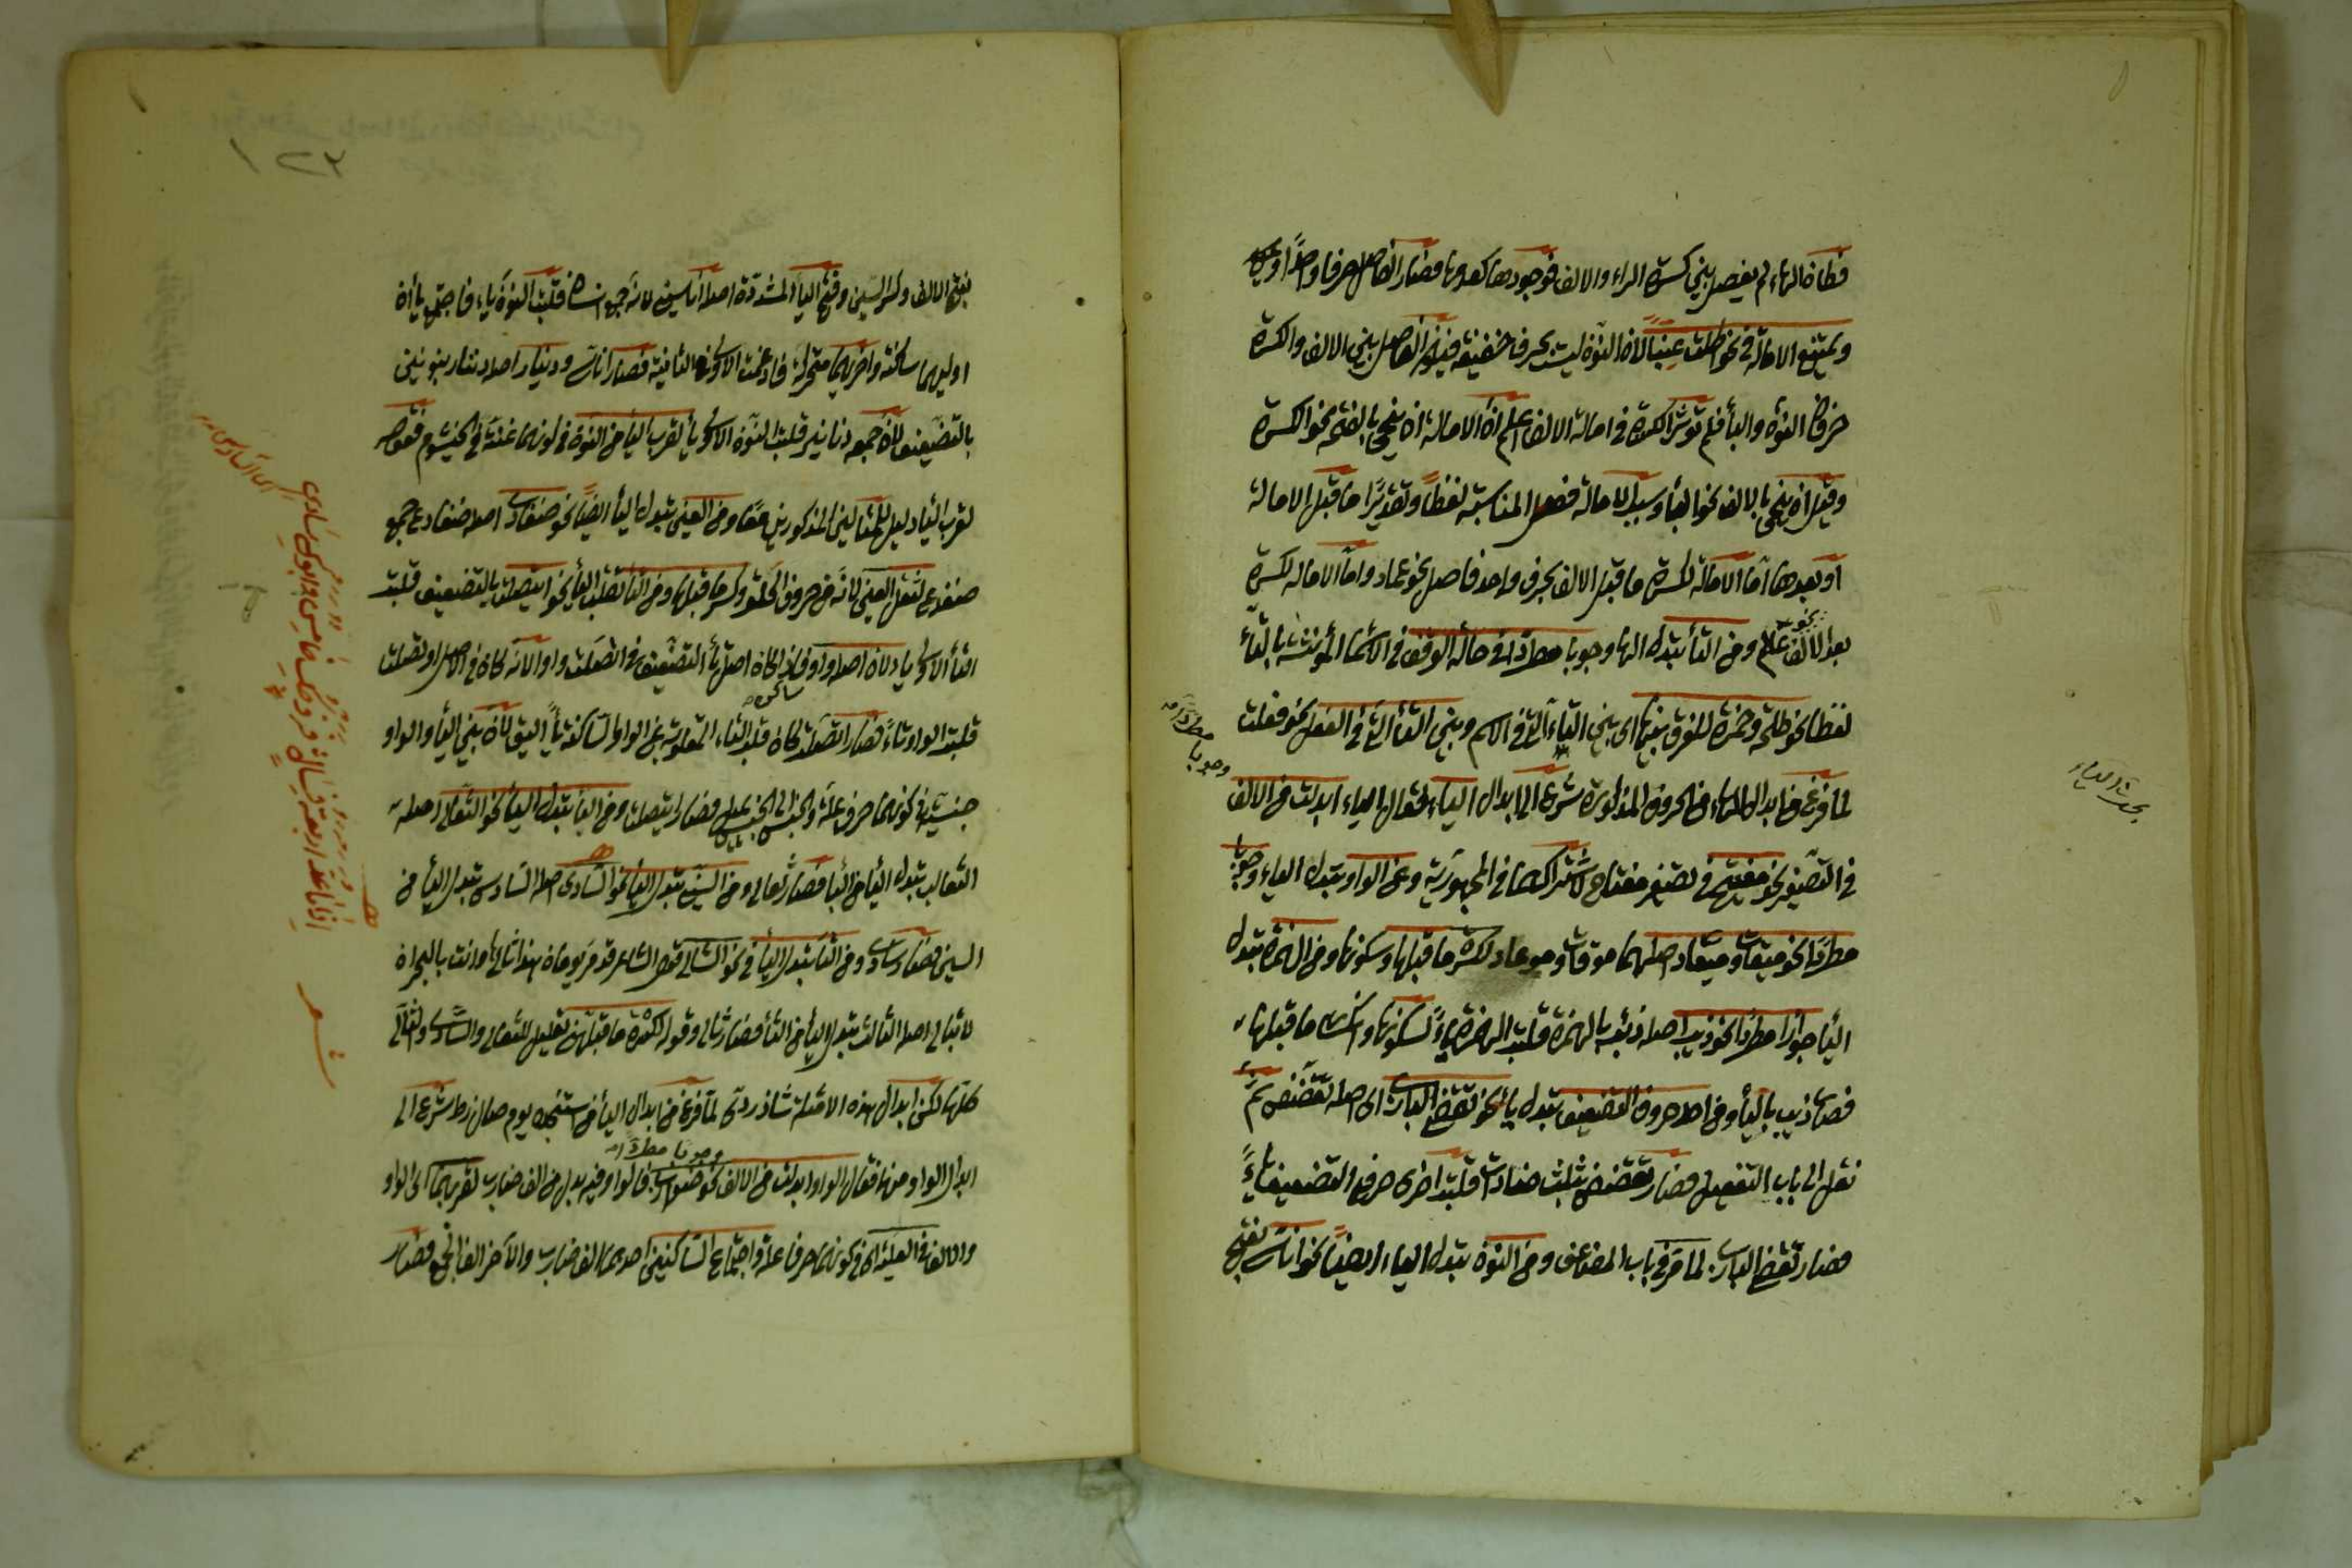 فكان الهاء لم يفصل بين كسرة الراء والالف فوجودها كعدمها فصار الفاصل حرفا واحدا
ويمتنع الامالة في نحو اكلت عنبا لان النون ليست بحرف خفيفة فيلزم الفاصل بين الالف والكسرة
حرفان النون والباء فلم تؤثر الكسرة في امالة الالف اعلم ان الامالة ان ينحى بالفتحة نحو الكسرة
وقيل ان ينحى بالالف نحو الياء وسبب الامالة قصد المناسبة لفظا وتقديرا ما قبل الامالة
او بعدها اما الامالة لكسرة ما قبل الالف بحرف واحد فاصل نحو عماد واما الامالة لكسرة
بعد الالف نحو عالم ومن التاء تبدل الهاء وجوبا مطردا في حالة الوقف في الاسماء المؤنثة بالتاء
لفظا نحو طلحة وحمزة للفرق بينها اى بين التاء التى في الاسم وبين التاء التى في الفعل نحو فعلت
وجوبا مطردا
لما فرغ من ابدال الهاء من الحروف المذكورة شرع الى ابدال الياء فقال الياء ابدلت من الالف
بحث الياء
في التصغير نحو مفيتيح في تصغير مفتاح لاشتراكهما في المجهورية ومن الواو تبدل الياء وجوبا
مطردا نحو ميقات وميعاد اصلهما موقات وموعاد لكسرة ما قبلها وسكونها ومن الهمزة تبدل
الياء جوازا مطردا نحو ذيب اصله ذئب بالهمزة قلبت الهمزة ياء لسكونها وانكسار ما قبلها
فصار ذيب بالياء ومن احد حروف التضعيف تبدل ياء نحو تقضي البازي اى اصله تقضض ثم
نقل الى باب التفعل فصار تقضض بثلث ضادات قلبت اخرى حرفي التضعيف ياء
فصار تقضي البازي لما مر في باب المضاعف ومن النون تبدل الياء ايضا نحو اناسي بفتح
بفتح الالف وكسر السين وفتح الياء المشددة اصله اناسين لانه جمع انسان قلبت النون ياء فاجتمع ياان
اوليهما ساكنة واخريهما متحركة فادغمت الاولى في الثانية فصار اناسي ودينار اصله دننار بنونين
بالتضعيف لان جمعه دنانير قلبت النون الاولى ياء لقرب الياء من النون في كونهما غنة في الخيشوم فقوله
لقرب الياء دليل للمثالين المذكورين معا ومن العين تبدل الياء ايضا نحو ضفادي اصله ضفادع جمع
ضفدع لثقل العين لانه من حروف الحلق وكسر ما قبلها ومن التاء تقلب الياء نحو ايتصلت بالتضعيف قلبت
التاء الاولى ياء لان اصله واو فان كان اصل ياء التضعيف في اتصلت واوا لانه كان في الاصل اوتصلت
قلبت الواو تاء فصار اتصلت كان قلب التاء المقلوبة عن الواو الساكنة ياء اليق لان بين الياء والواو
ساكن
جنسية في كونهما حرف علة والجنس الى الجنس يميل فصار ايتصلت ومن الباء تبدل الياء نحو الثعالي اصله
الثعالب تبدل الياء من الباء فصار ثعالي ومن السين تبدل الياء نحو السادي اصله السادس تبدل الياء من
السين فصار سادي ومن الثاء تبدل الياء في نحو الثالي فقول الشاعر قد مر يومان وهذا الثالي وانت بالهجران
لا تبالي اصله الثالث تبدل الياء من الثاء فصار ثالي وقوله لكسرة ما قبلهن تعليل للثعالي والسادي والثالي
كلها لكن ابدال هذه الامثلة شاذ ردى لما فرغ من ابدال الياء من استنجده يوم صال زط شرع الى
ابدال الواو منها فقال الواو ابدلت من الالف نحو ضوارب فالواو فيه بدل من الف ضارب لقربهما الى الواو
وجوبا مطردا
والالف في العلية اى في كونهما حرفا علة واجتماع الساكنين احدهما الف ضارب والآخر الف الجمع فصار
اى السادس
اذا ما عد اربعة فسال فزوجك خامس وابوك سادي
شعر